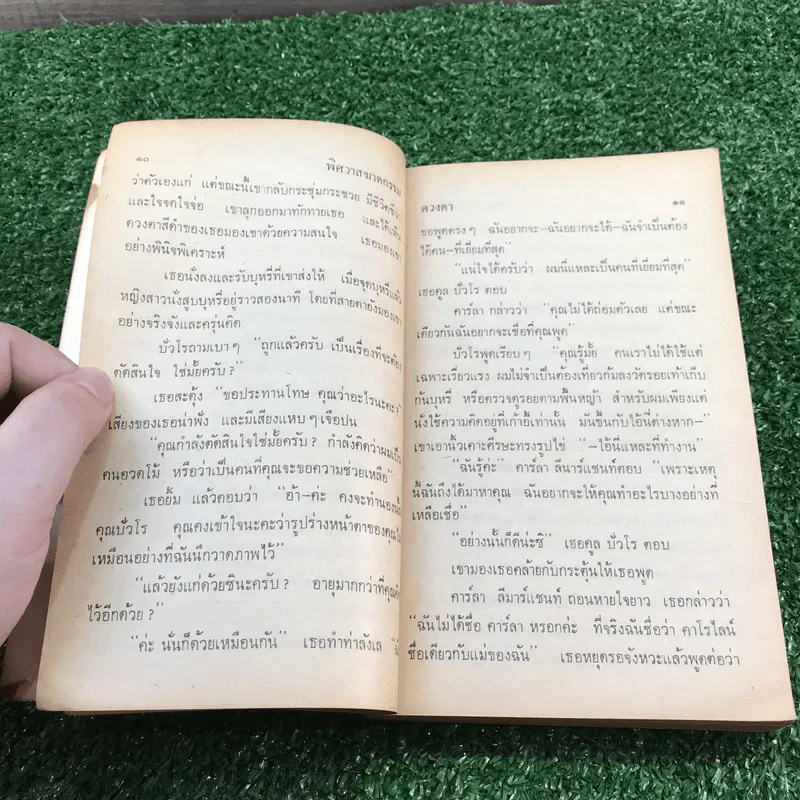 ๑๐
พิศวาสฆาตกรรม
ว่าตัวเองแก่ แต่ขณะนี้เขากลับกระชุ่มกระชวย มีชีวิตชีวา
และใจจดใจจ่อ เขาลุกออกมาทักทายเธอ และได้เห็น
ดวงตาสีดำของเธอมองเขาด้วยความสนใจ เธอมองเขา
อย่างพินิจพิเคราะห์
เธอนั่งลงและรับบุหรี่ที่เขาส่งให้ เมื่อจุดบุหรี่แล้ว
หญิงสาวนั่งสูบบุหรี่อยู่ราวสองนาที โดยที่สายตายังมองเขา
อย่างจริงจังและครุ่นคิด
ปัวโรถามเบาๆ “ถูกแล้วครับ เป็นเรื่องที่จะต้อง
ตัดสินใจ ใช่มั้ยครับ?
เธอสะดุ้ง “ขอประทานโทษ คุณว่าอะไรนะคะ?”
เสียงของเธอน่าฟัง และมีเสียงแหบๆเจือปน
“คุณกำลังตัดสินใจใช่มั้ยครับ? กำลังคิดว่าผมเป็น
คนอวดโม้ หรือว่าเป็นคนที่คุณจะขอความช่วยเหลือ”
เธอยิ้ม แล้วตอบว่า “อ้า-ค่ะ คงจะทำนองนั้น
คุณปัวโร คุณคงเข้าใจนะคะว่ารูปร่างหน้าตาของคุณ
เหมือนอย่างที่ฉันนึกวาดภาพไว้”
“แล้วยังแก่ด้วยซินะครับ? อายุมากกว่าที่คุณคิด
ไว้อีกด้วย?”
“ค่ะ นั่นก็ด้วยเหมือนกัน” เธอทำท่าลังเล
ดวงตา
๑๑
ขอพูดตรงๆ ฉันอยากจะ—ฉันอยากจะได้—ฉันจำเป็นต้อง
ได้คน—ที่เยี่ยมที่สุด”
“แน่ใจได้ครับว่า ผมนี่แหละเป็นคนที่เยี่ยมที่สุด”
เฮอคูล ปัวโร ตอบ
คาร์ลา กล่าวว่า “คุณไม่ได้ถ่อมตัวเลย แต่ขณะ
เดียวกันฉันอยากจะเชื่อที่คุณพูด”
ปัวโรพูดเรียบๆ “คุณรู้มั้ย คนเราไม่ได้ใช้แต่
เฉพาะเรี่ยวแรง ผมไม่จำเป็นต้องเที่ยวก้มลงวัดรอยเท้าเก็บ
ก้นบุหรี่ หรือตรวจดูรอยตามพื้นหญ้า สำหรับผมเพียงแต่
นั่งใช้ความคิดอยู่ที่เก้าอี้เท่านั้น มันขึ้นกับไอ้นี่ต่างหาก—”
เขาเอานิ้วเคาะศีรษะทรงรูปไข่ “—ไอ้นี่แหละที่ทำงาน”
“ฉันรู้ค่ะ” คาร์ลา ลีมาร์แชนท์ตอบ “เพราะเหตุ
นี้ฉันถึงได้มาหาคุณ ฉันอยากจะให้คุณทำอะไรบางอย่างที่
เหลือเชื่อ”
“อย่างนั้นก็ดีน่ะซิ” เฮอคูล ปัวโร ตอบ
เขามองเธอคล้ายกับกระตุ้นให้เธอพูด
คาร์ลา ลีมาร์แชนท์ ถอนหายใจยาว เธอกล่าวว่า
“ฉันไม่ได้ชื่อ คาร์ลา หรอกค่ะ ที่จริงฉันชื่อว่า คาโรไลน์
ชื่อเดียวกับแม่ของฉัน” เธอหยุดรอจังหวะแล้วพูดต่อว่า